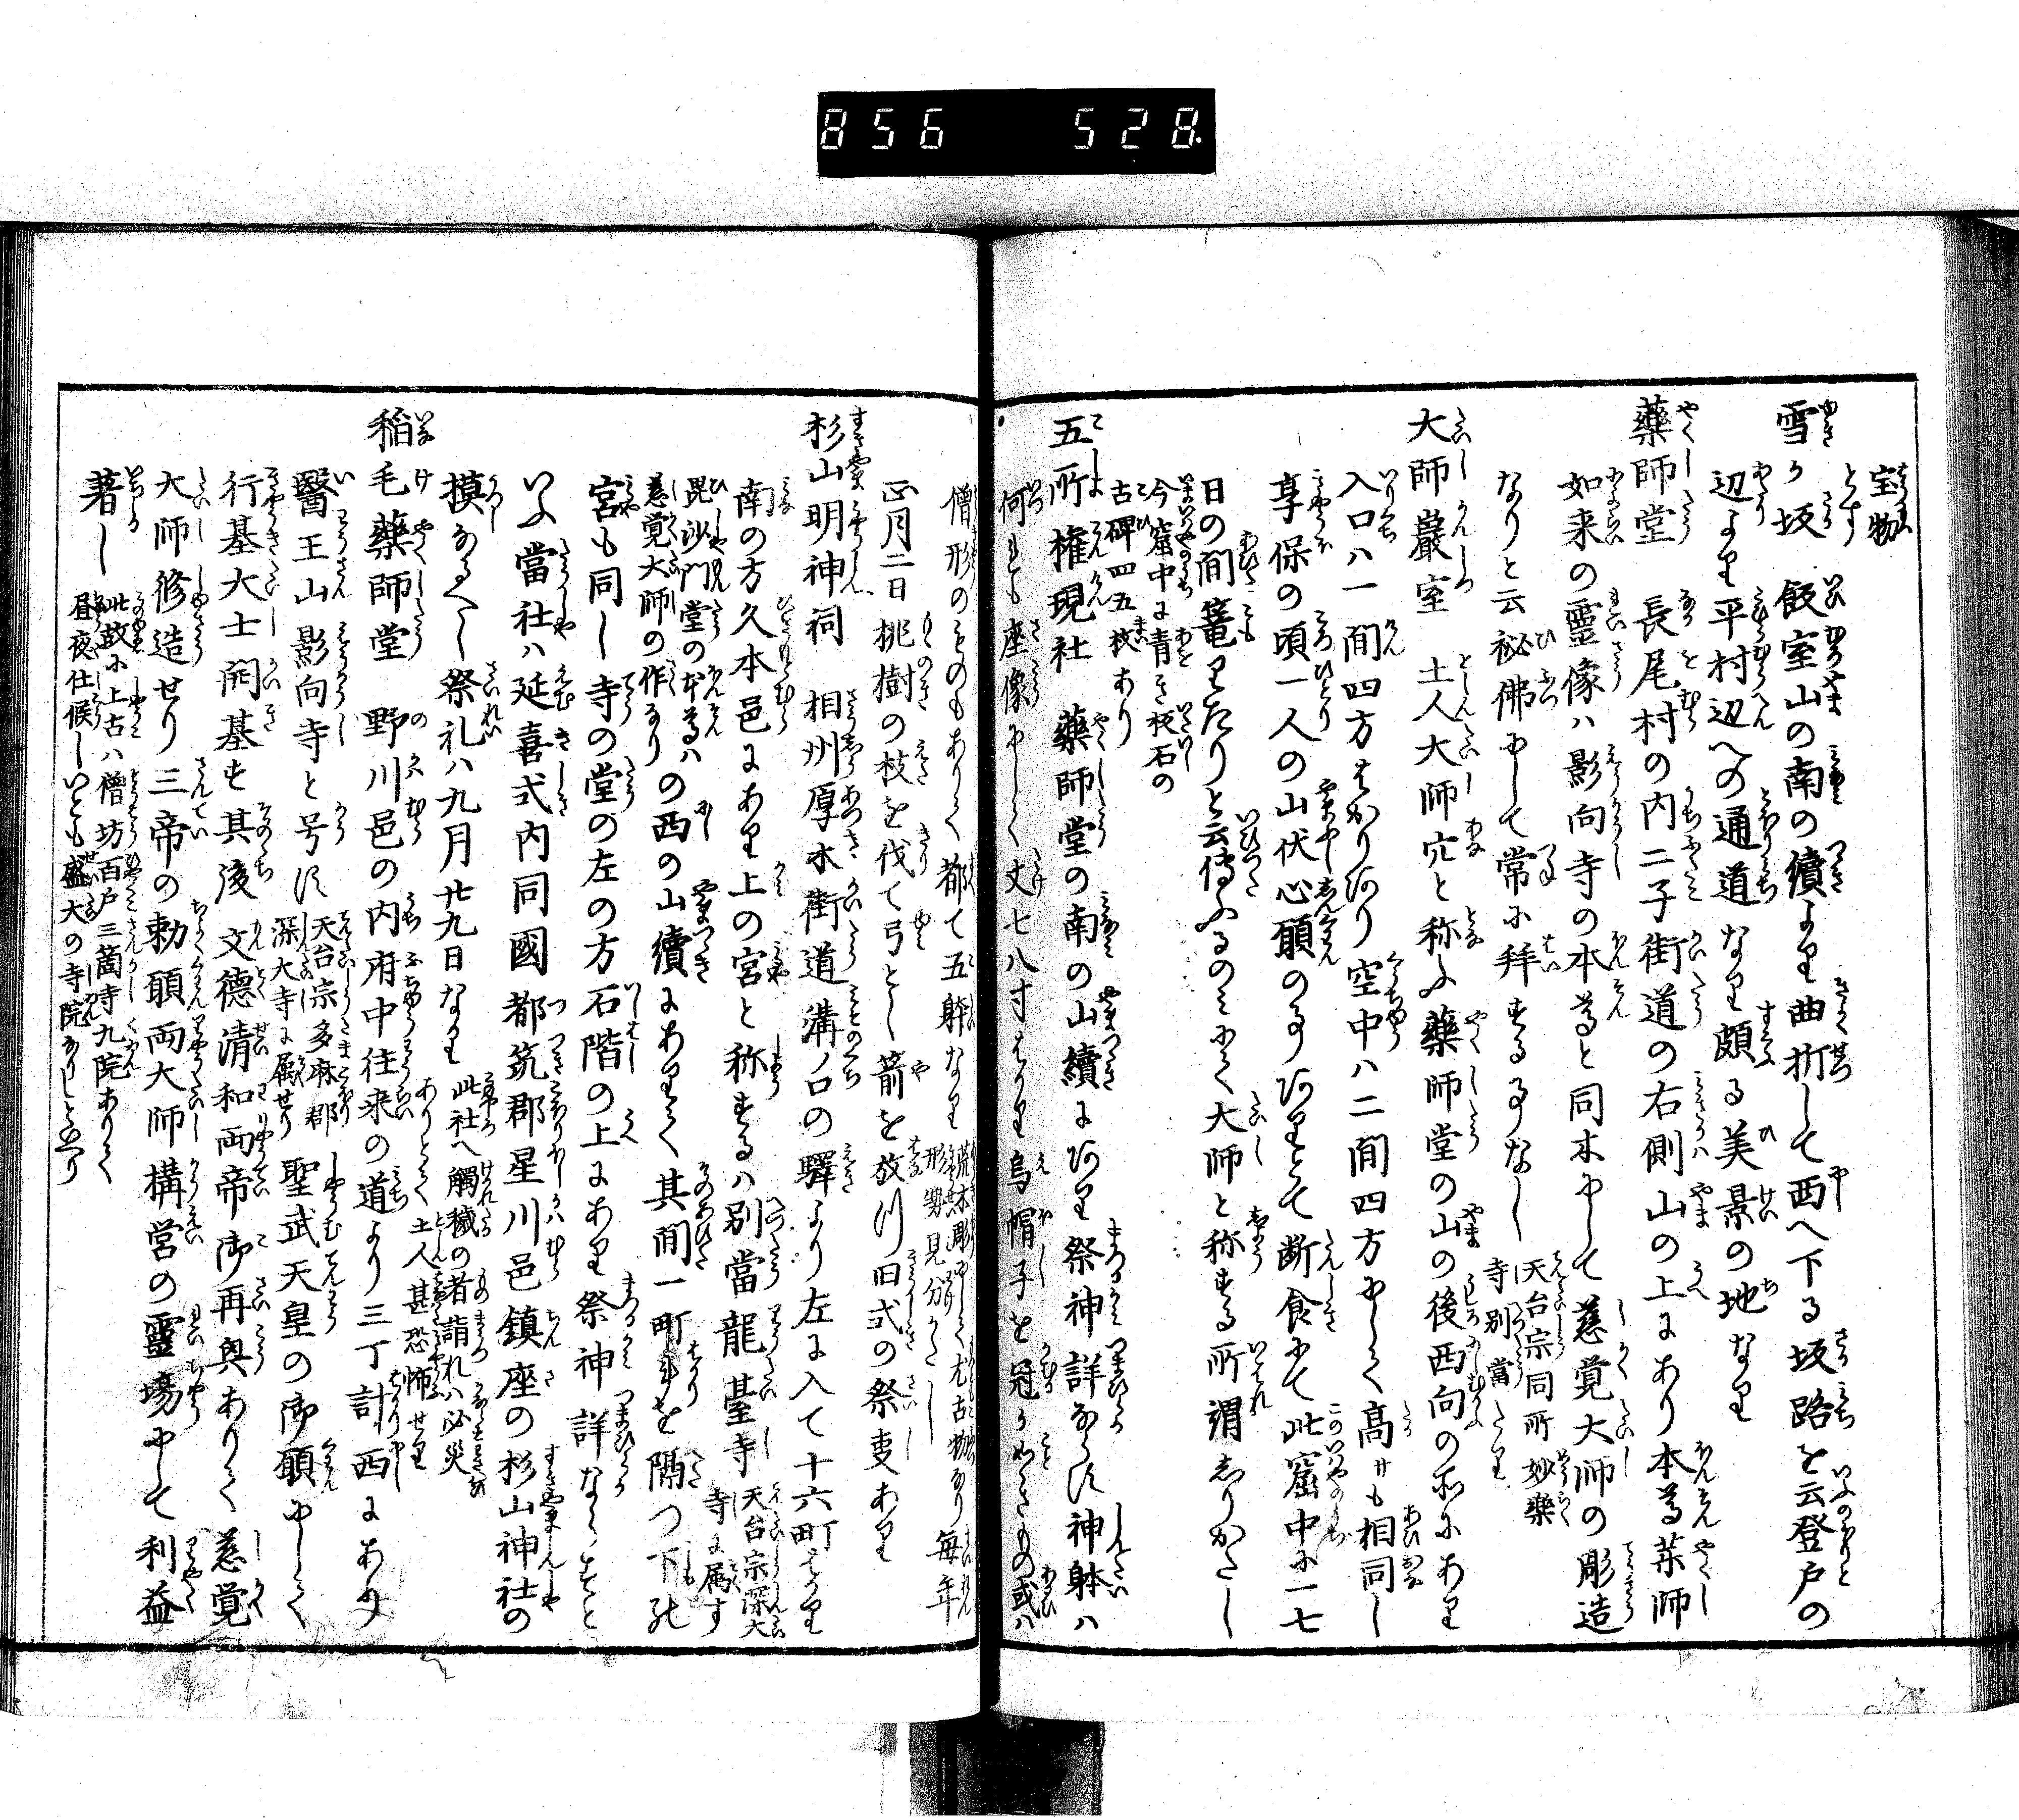 856 528
宝物
とす
雪ヶ坂 飯室山の南の續より曲折して西へ下る坂路を云登戸の
辺より平村辺への通道なり頗る美景の地なり
藥師堂 長尾村の内二子街道の右側山の上にあり本尊薬師
如来の靈像ハ影向寺の本尊と同木にして慈覚大師の彫造
なりと云秘佛にして常に拜する事なし
天台宗同所妙樂
寺別當たり
大師巖室 土人大師穴と称ふ藥師堂の山の後西向の所にあり
入口ハ一間四方はかりあり空中ハ二間四方にして高サも相同し
享保の頃一人の山伏心願の事ありとて断食して此窟中に一七
日の間篭りたりと云傳ふるのミにて大師と称する所謂しりかたし
今窟中に青き板石の
古碑四五枚あり
五所権現社 藥師堂の南の山續にあり祭神詳ならす神躰ハ
何れも座像にして丈七八寸はかり烏帽子を冠りしことくのもの或ハ
僧形のことのもありて都て五躰なり
荒木彫にして尤古物なり
形勢見分かたし
毎年
正月二日桃樹の枝を伐て弓とし箭を放つ旧式の祭事あり
杉山明神祠 相州厚木街道溝ノ口の驛より左に入て十六町はかり
南の方久本邑にあり上の宮と称するハ別當龍臺寺
天台宗深大
寺に属す
毘沙門堂の本尊ハ
慈覚大師の作なり
の西の山續にありて其間一町斗を隔つ下の
宮も同し寺の堂の左の方石階の上にあり祭神詳ならすと
いふ當社ハ延喜式内同國都筑郡星川邑鎮座の杉山神社の
摸なるへし祭礼ハ九月廿九日なり
此社へ觸穢の者詣れハ必災
ありとて土人甚恐怖せり
稲毛藥師堂 野川邑の内府中往来の道より三丁計西にあり
醫王山影向寺と号す
天台宗多麻郡
深大寺に属せり
聖武天皇の御願にして
行基大士開基す其後文德清和両帝御再興ありて慈覚
大師修造せり三帝の勅願両大師構営の靈場にて利益
著し
此故に上古ハ僧坊百戸三箇寺九院ありて
昼夜仕候しいとも盛大の寺院なりしと云り